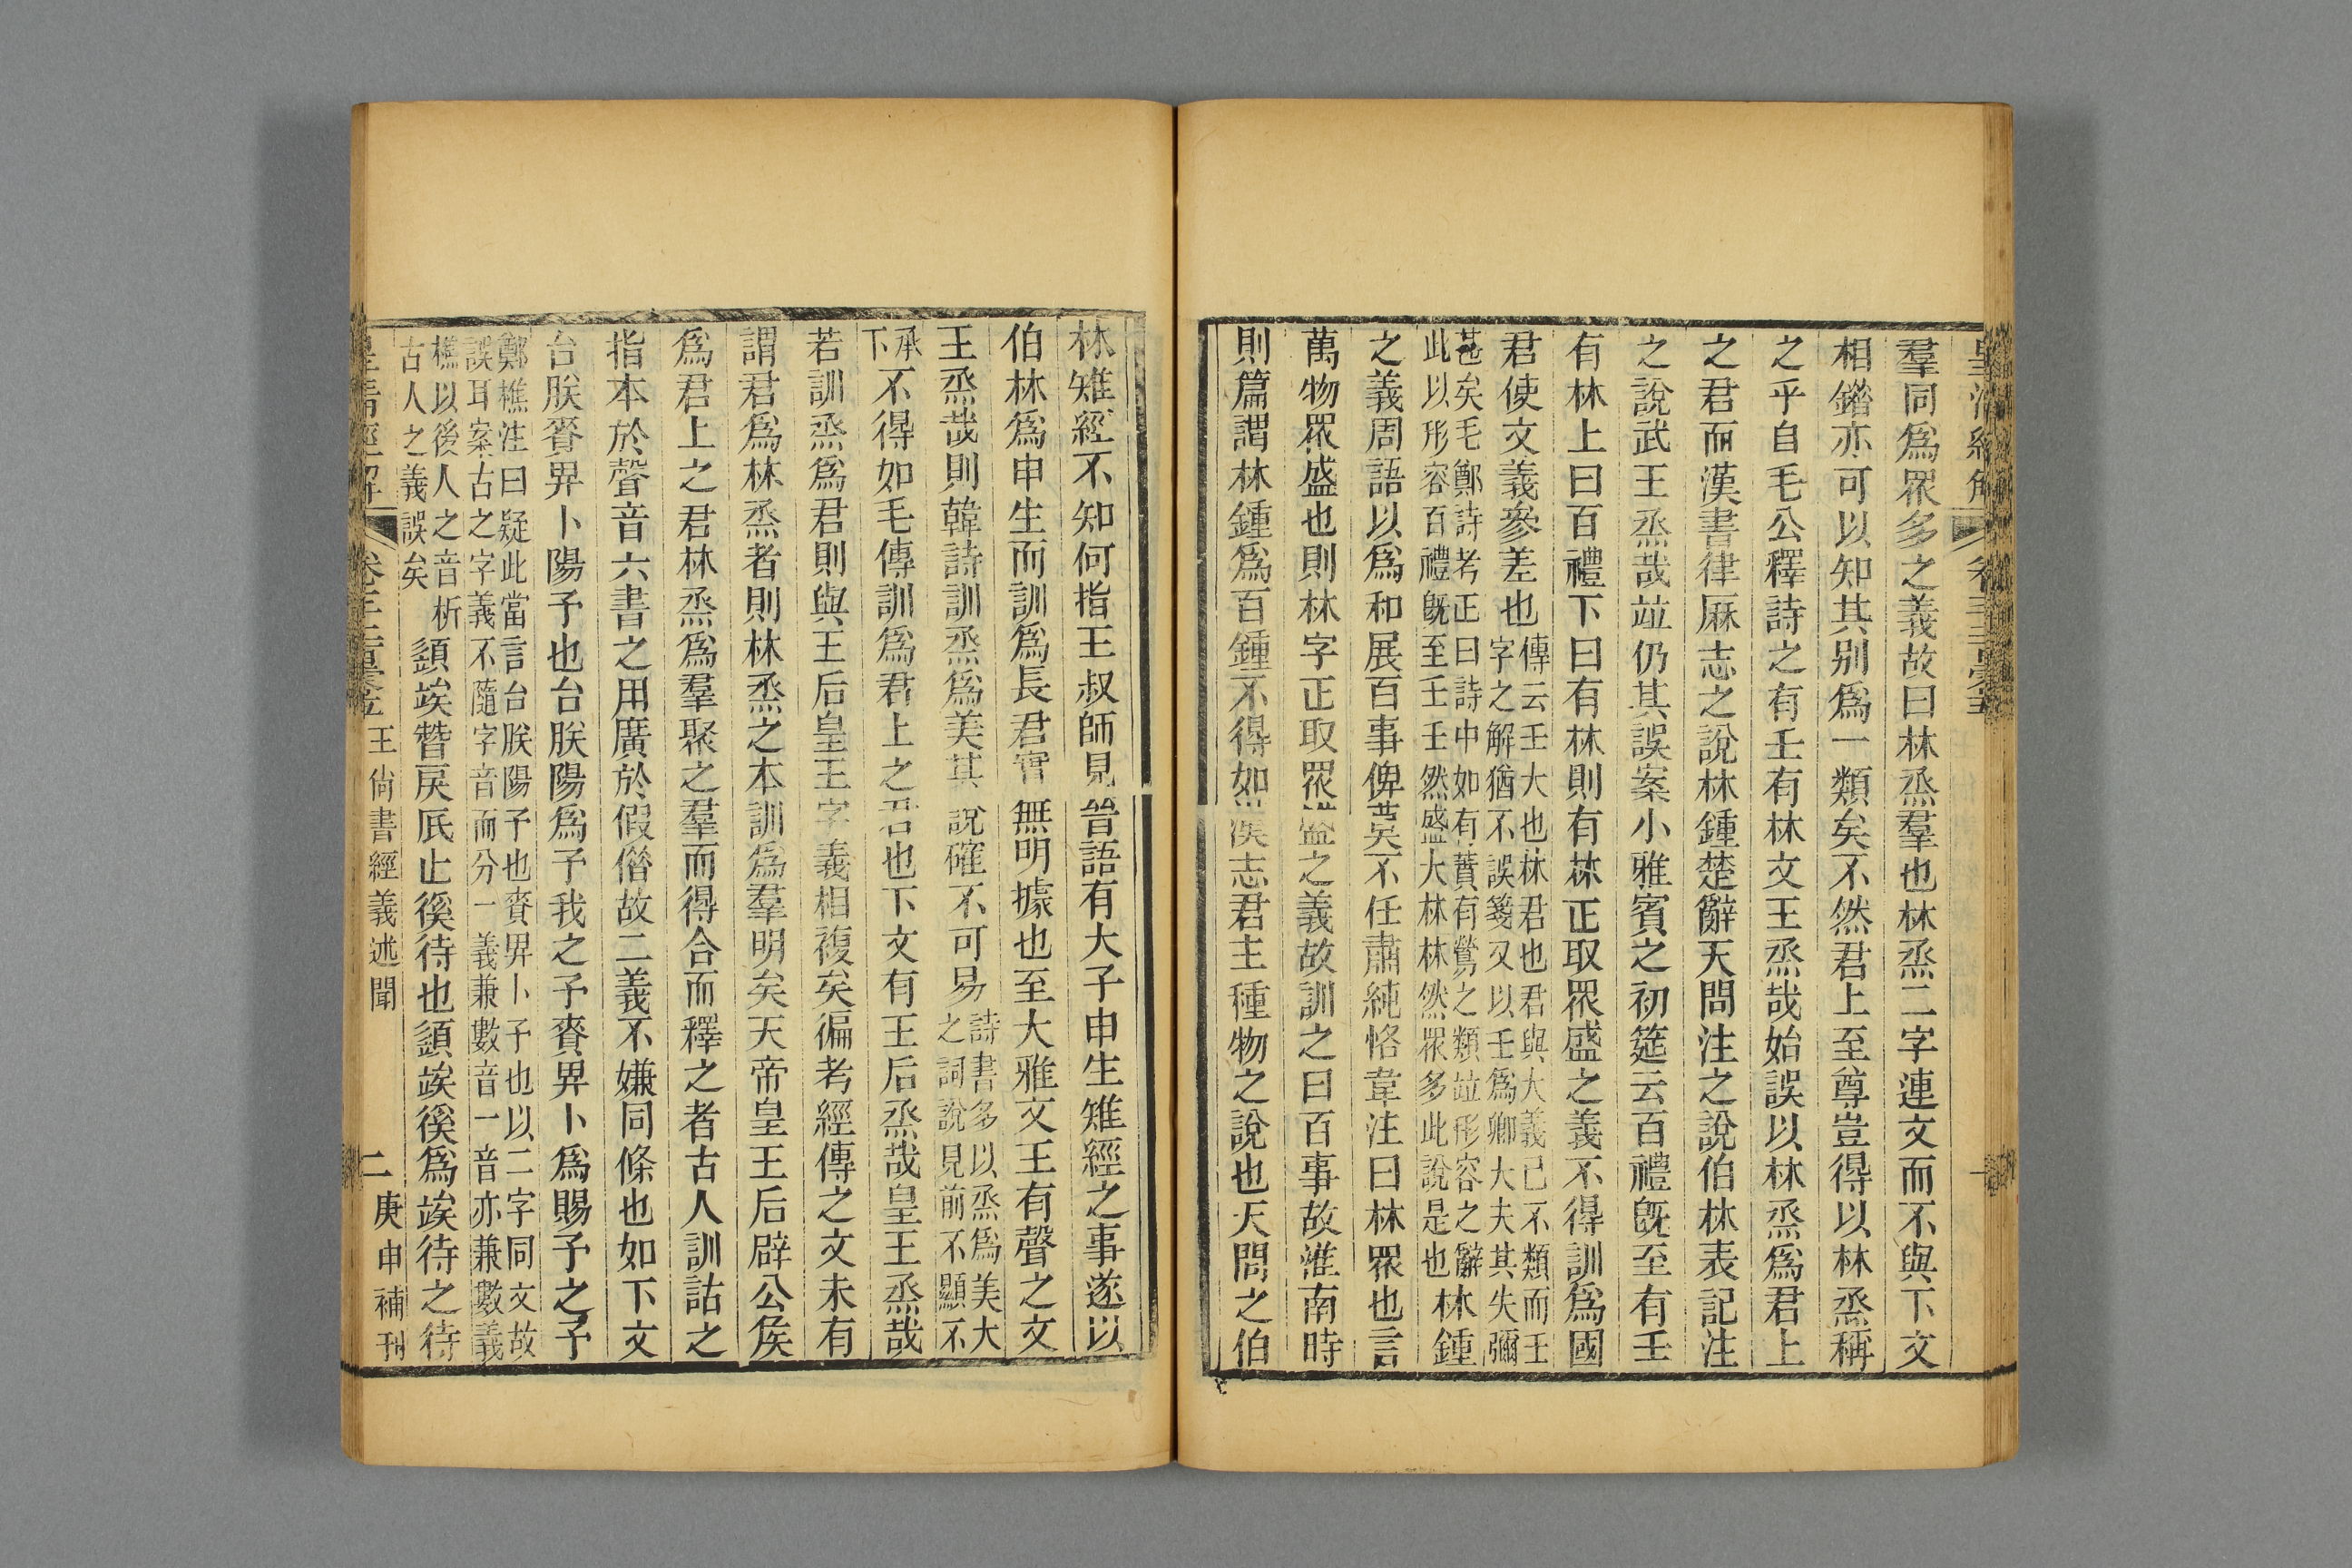 羣同爲眾多之義故曰林烝羣也林烝二字連文而不與下文
相錯亦可以知其別爲一類矣不然君上至尊豈得以林烝稱
之乎自毛公釋詩之有壬有林文王烝哉始誤以林烝爲君上
之君而漢書律厤志之說林鍾楚辭天問注之說伯林表記注
之說武王烝哉竝仍其誤案小雅賓之初筵云百禮旣至有壬
有林上曰百禮下曰有林則有林正取眾盛之義不得訓爲國
君使文義參差也
傳云壬大也林君也君與大義已不類而壬
字之解猶不誤箋又以壬爲卿大夫其失彌
甚矣毛鄭詩考正曰詩中如有蕡有鶯之類竝形容之辭
此以形容百禮旣至壬壬然盛大林林然眾多此說是也
林鍾
之義周語以爲和展百事俾莫不任肅純恪韋注曰林眾也言
萬物眾盛也則林字正取眾盛之義故訓之曰百事故淮南時
則篇謂林鍾爲百鍾不得如漢志君主種物之說也天問之伯
林雉經不知何指王叔師見晉語有大子申生雉經之事遂以
伯林爲申生而訓爲長君實無明據也至大雅文王有聲之文
王烝哉則韓詩訓烝爲美其說確不可易
詩書多以烝爲美大
之詞說見前不顯不
承
下
不得如毛傳訓爲君上之君也下文有王后烝哉皇王烝哉
若訓烝爲君則與王后皇王字義相複矣徧考經傳之文未有
謂君爲林烝者則林烝之本訓爲羣明矣天帝皇王后辟公侯
爲君上之君林烝爲羣聚之羣而得合而釋之者古人訓詁之
指本於聲音六書之用廣於假借故二義不嫌同條也如下文
台朕賚畀卜陽予也台朕陽爲予我之予賚畀卜爲賜予之予
鄭樵注曰疑此當言台朕陽予也賚畀卜予也以二字同文故
誤耳案古之字義不隨字音而分一義兼數音一音亦兼數義
樵以後人之音析
古人之義誤矣
頿竢替戾厎止徯待也頿竢徯爲竢待之待
王尙書經義述聞
二
庚申補刊